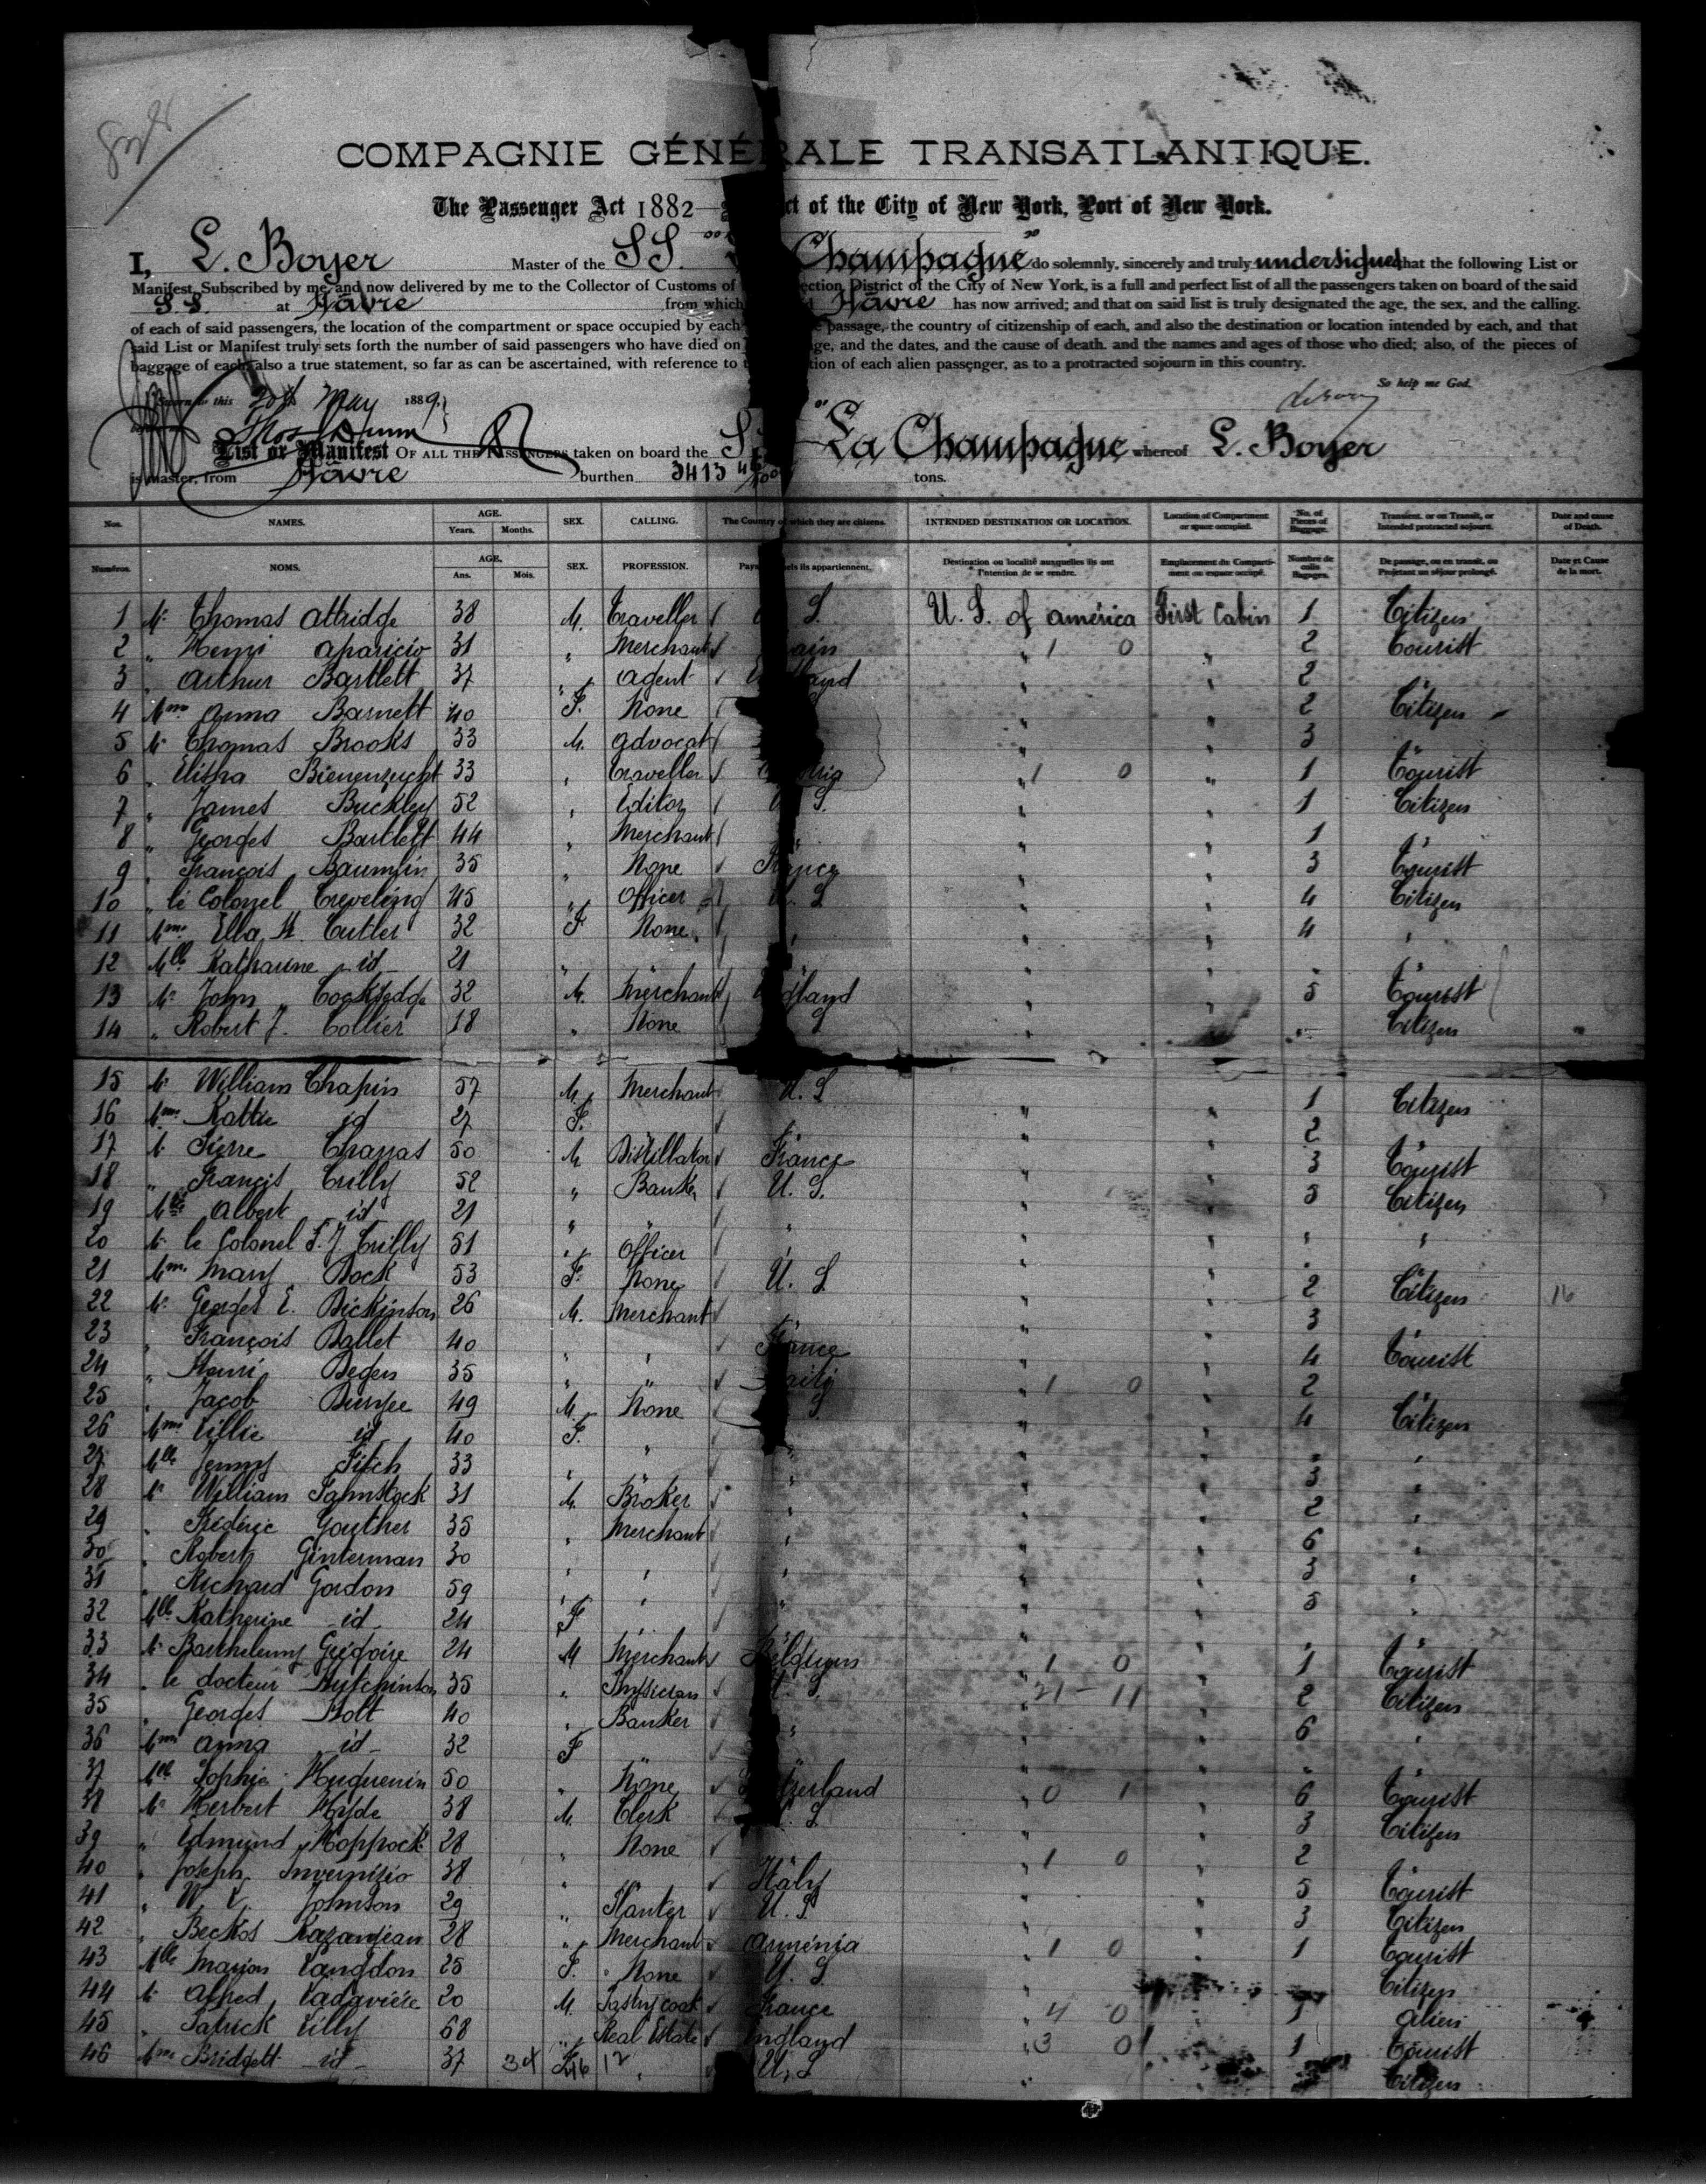 COMPAGNIE GÉNÉRALE TRANSATLANTIQUE.
The Passenger Act 1882 ct of the City of New York, Port of New York.
I, L. Boyer Master of the SS. Champagne do solemnly, sincerely and truly undersigned that the following List or
Manifest, Subscribed by me, and now delivered by me to the Collector of Customs of ection District of the City of New York, is a full and perfect list of all the passengers taken on board of the said
S.S. at Hâvre from which Hâvre has now arrived; and that on said list is truly designated the age, the sex, and the calling.
of each of said passengers, the location of the compartment or space occupied by each passage, the country of citizenship of each, and also the destination or location intended by each, and that
said List or Manifest truly sets forth the number of said passengers who have died on ge, and the dates, and the cause of death. and the names and ages of those who died; also, of the pieces of
baggage of each, also a true statement, so far as can be ascertained, with reference to tion of each alien passenger, as to a protracted sojourn in this country.
So help me God.
Sworn to this May 1889
List or Manifest OF ALL THE PASSENGERS taken on board the S La Champagne whereof L. Boyer
is master, from Hâvre burthen 3413 tons.
Nos. NAMES. AGE. Years. Months. SEX. CALLING. The Country of which they are citizens. INTENDED DESTINATION OR LOCATION. Location of Compartment or space occupied. No. of Pieces of Baggage. Transient, or on Transit, or Intended protracted sojourn. Date and cause of Death.
Numéros. NOMS. AGE. Ans. Mois. SEX. PROFESSION. Pays els ils appartiennent. Destination ou localité auxquelles ils ont l'intention de se rendre. Emplacement du Compartiment ou espace occupé. Nombre de colis Bagages. De passage, ou en transit, ou Projetant un séjour prolongé. Date et Cause de la mort.
1 Mr Thomas Attridge 38 M. Traveller S. U. S. of America First Cabin 1 Citizen
2 " Henri Aparicio 31 " Merchant ain " 1 0 " 2 Tourist
3 " Arthur Bartlett 37 " Agent land " " 2 "
4 Mme Anna Barnett 40 F. None " " 2 Citizen
5 Mr Thomas Brooks 33 M. Advocat " " 3 "
6 " Bienenzucht 33 " Traveller " 1 0 " 1 Tourist
7 " James Buckley 52 " Editor S. " " 1 Citizen
8 " Georges Bartlett 44 " Merchant " " " 1 "
9 " François Baumlin 35 " None France " " 3 Tourist
10 " le Colonel Creveling 45 " Officer U. S " " 4 Citizen
11 Mme Ella H. Cutler 32 F None " " " 4 "
12 Mlle Katharine id 21 " " " " " " "
13 Mr John Cockledge 32 M. Merchant gland " " 5 Tourist
14 " Robert J. Collier 18 " None S " " " Citizen
15 Mr William Chapin 57 M. Merchant U. S " " 1 Citizen
16 Mme Kattie id 27 F. " " " 2 "
17 Mr Pierre Chapas 50 M Distillator France " " 3 Tourist
18 " Francis Crilly 52 " Banker U. S. " " 5 Citizen
19 Albert id 21 " " " " " " "
20 Mr le Colonel F. J Crilly 51 " Officer " " " " "
21 Mme Mary Dock 53 F. None U. S " " 2 Citizen
22 Mr Georges E. Dickinson 26 M. Merchant " " 3 "
23 " François Dallet 40 " " France " " 4 Tourist
24 " Henri Degen 35 " " aiti " 1 0 " 2 "
25 " Jacob 49 M. None S " " 4 Citizen
26 Mme Lillie id 40 F. " " " " " "
27 Mlle Jenny Fitch 33 " " " " " 3 "
28 Mr William Fahnstock 31 M. Broker " " " 2 "
29 " Fréderic Gauther 35 " Merchant " " " 6 "
30 " Robert Ginterman 30 " " " " " 3 "
31 " Richard Gordon 59 " " " " " 5 "
32 Mlle Katherine id 24 F " " " "
33 Mr Barthelemy Grégoire 24 M Merchant Belgium " 1 0 " 1 Tourist
34 " le docteur Hutchinson 35 " Physician S " 21 - 11 " 2 Citizen
35 " Georges Holt 40 " Banker " " " 6 "
36 Mme Anna id 32 F " " " "
37 Mlle Sophie Huguenin 50 " None zerland " 0 1 " 6 Tourist
38 Mr Herbert Hyde 38 M. Clerk S " " 3 Citizen
39 " Edmund Hoppock 28 " None " " 2 "
40 " Joseph Invernizio 38 " " Italy " 1 0 " 5 Tourist
41 " Johnson 29 " Planter U. S " " 3 Citizen
42 " Kazanjean 28 " Merchant Armenia " 1 0 " 1 Tourist
43 Mlle Marion Langdon 25 F. None U. S. " " Citizen
44 Mr Alfred 20 M. Pastry cook France " 4 0 " 1 Alien
45 " Patrick Lilly 68 " Real Estate England " 3 0 " 1 Tourist
46 Mme Bridgett id 37 34 F 46 12 U. S " Citizen